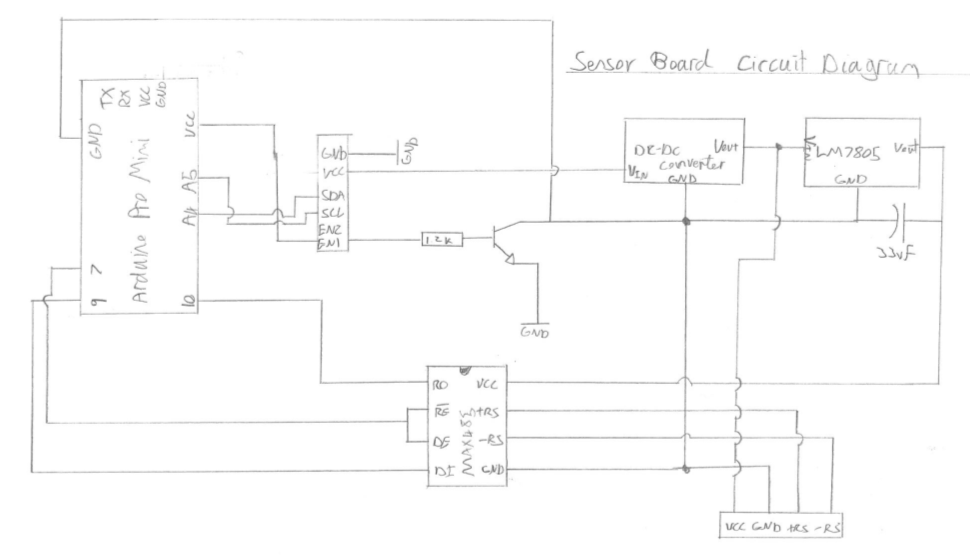 Sensor Board Circuit Diagram
TX
RX
VCC
GND
GND
VCC
A5
A4
Arduino Pro Mini
7
9
10
GND
VCC
SDA
SCL
EN2
EN1
GND
1.2K
GND
DC-DC
Converter
Vout
VIN
GND
VIN
LM7805
Vout
GND
33uF
RO
VCC
RE
+RS
DE
-RS
DI
GND
VCC GND +RS -RS